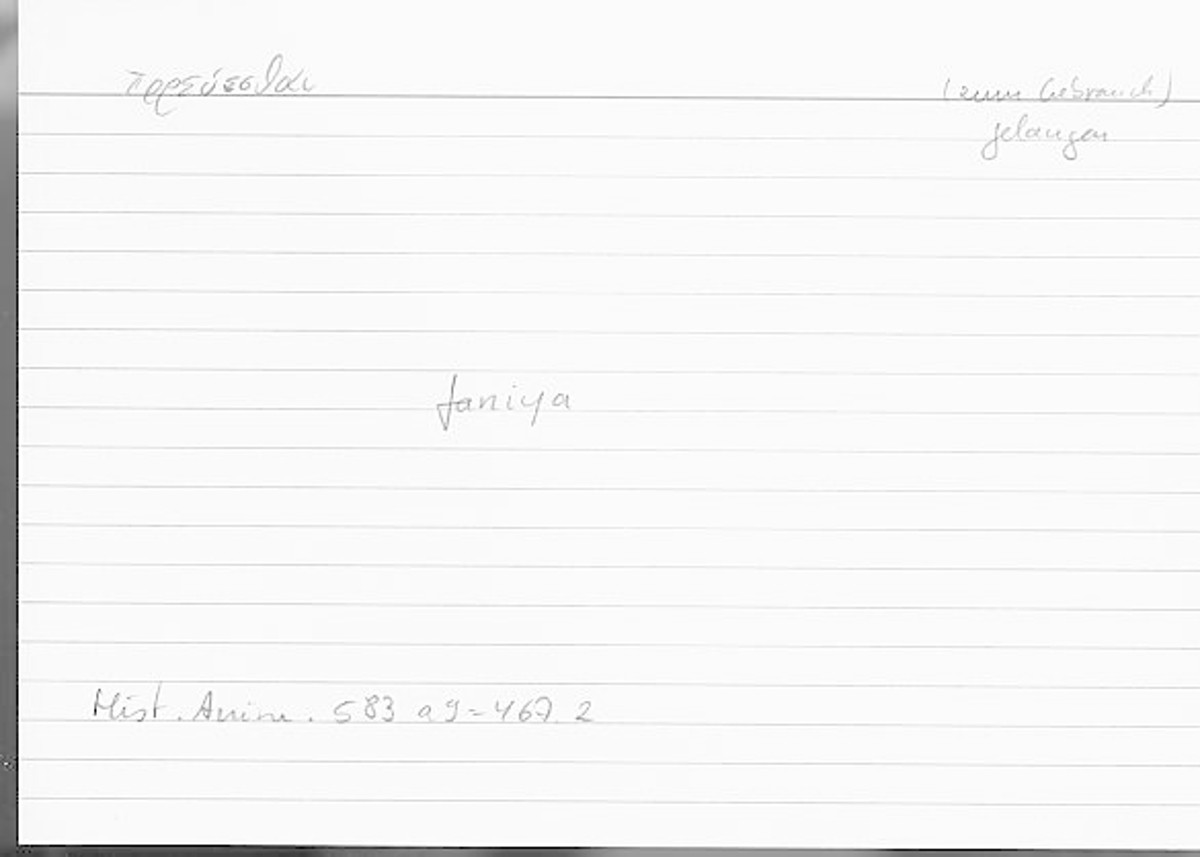 πορεύεσθαι
(zum Gebrauch)
gelangen
faniya
Hist. Anim. 583 a9=467.2